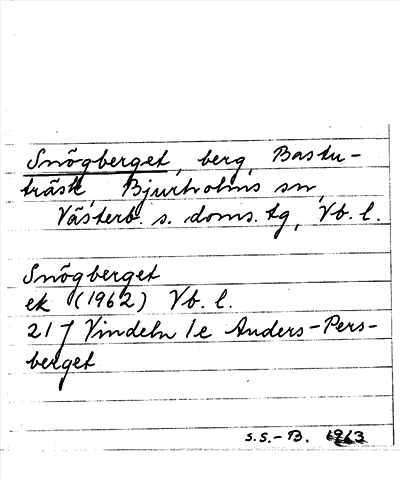 Snögberget, berg, Bastu-
träsk, Bjurholms sn,
Västerb. s. doms. tg, Vb. l.
Snögberget
ek (1962) Vb. l.
21 J Vindeln 1e Anders-Pers-
berget
S.S.-B. 1963